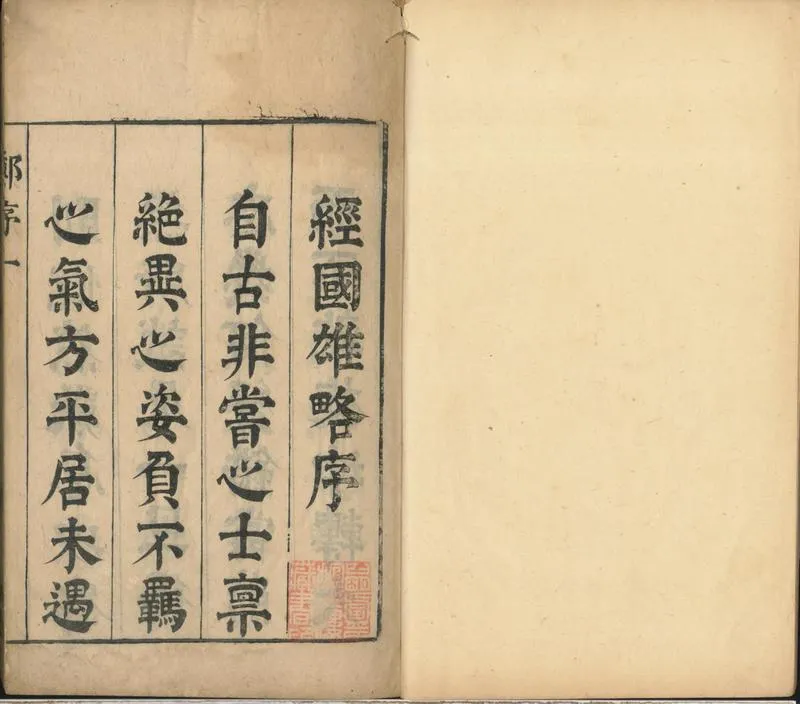 經國雄略序
自古非嘗之士禀
絕異之姿負不羈
之氣方平居未遇
鄭序一